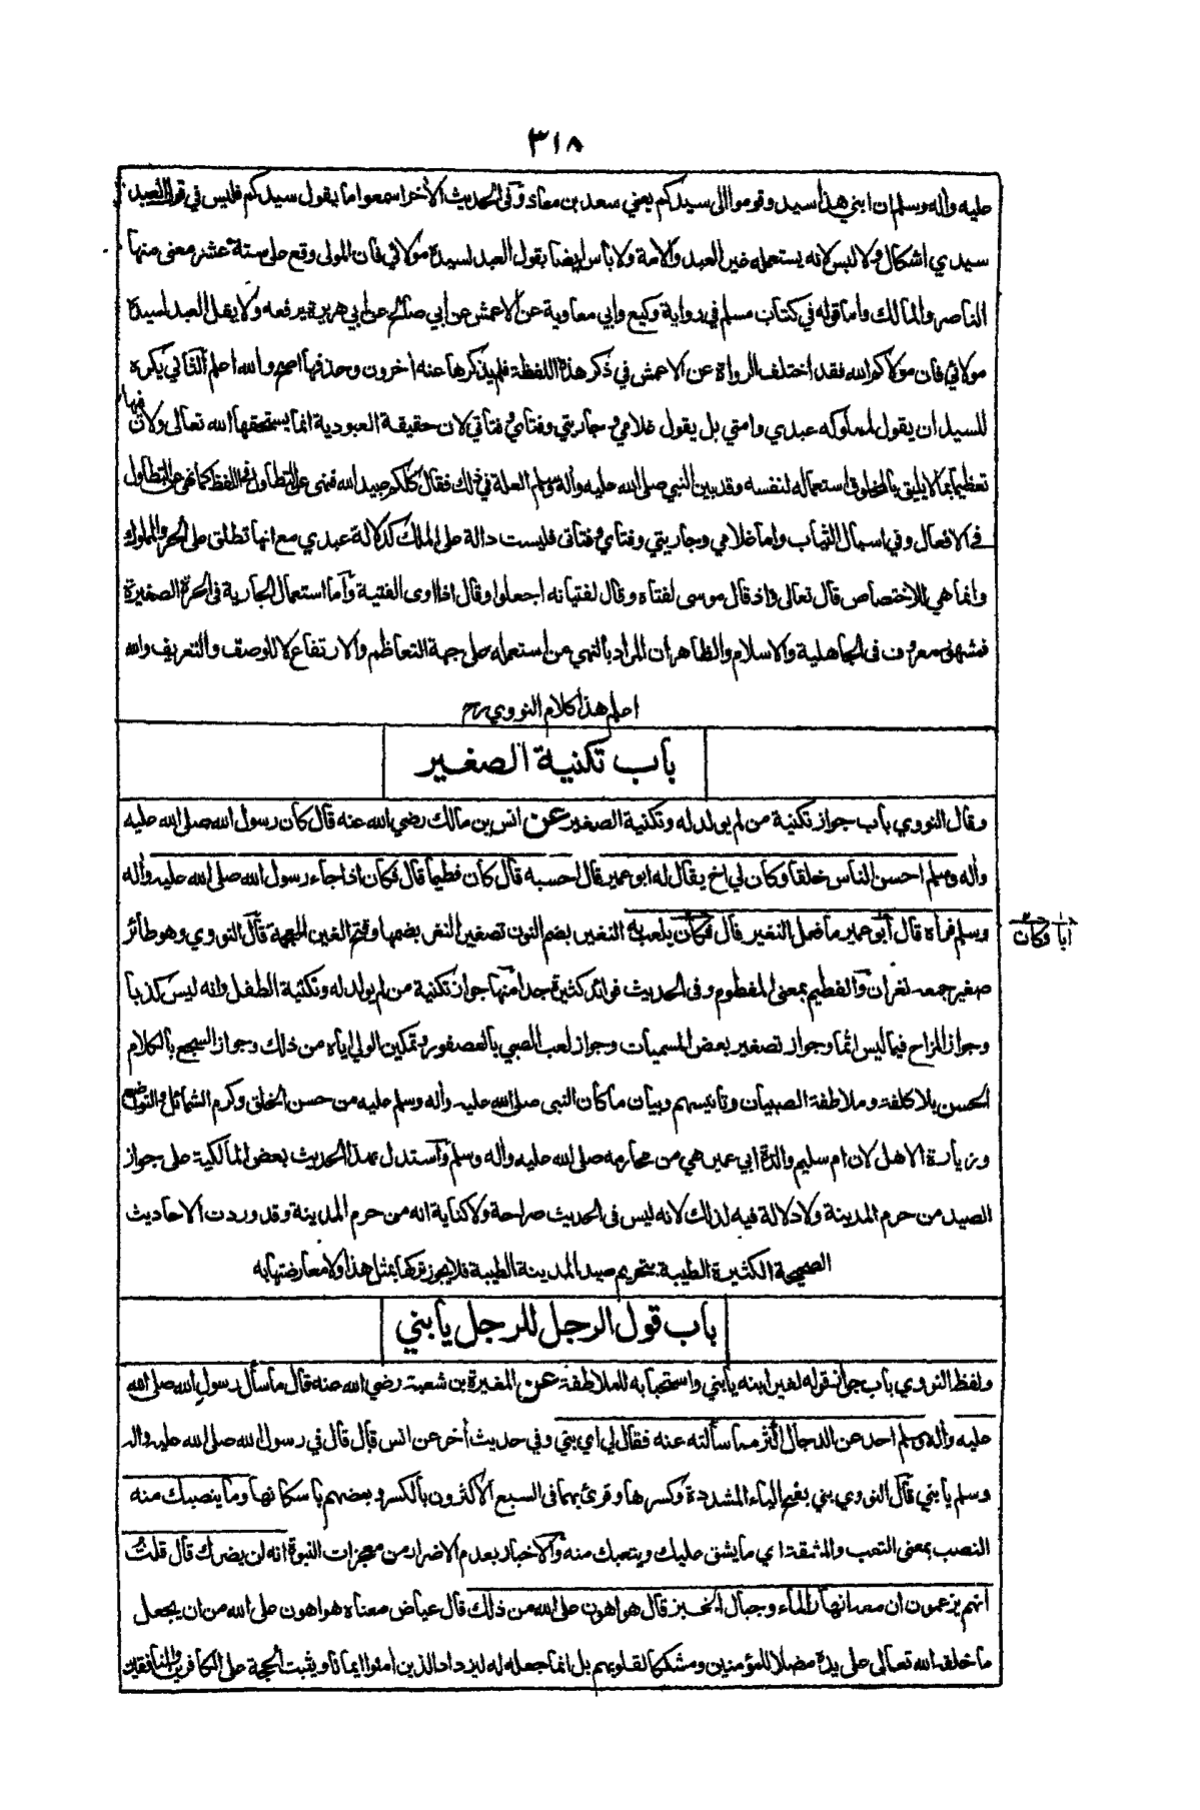 ٣١٨
عليه واله وسلم ان ابني هذا سيد وقوموا الى سيدكم يعني سعد بن معاذ وفي الحديث الأخر اسمعوا ما يقول سيدكم فليس في قول العبد
سيدي اشكال ولا لبس لانه يستعمله غير العبد والأمة ولا بأس ايضا بقول العبد لسيده مولائي فان المولى وقع على ستة عشر معنى منها
الناصر والمالك واما قوله في كتاب مسلم في رواية وكيع وابي معاوية عن الاعمش عن ابي صالح عن ابي هريرة يرفعه ولا يقل العبد لسيده
مولائي فان مولاكم الله فقد اختلف الرواة عن الاعمش في ذكر هذه اللفظة فلم يذكرها عنه اخرون وحذفها اصح والله اعلم الثاني يكره
للسيد ان يقول لمملوكه عبدي وامتي بل يقول غلامي وجاريتي وفتاي وفتاتي لان حقيقة العبودية انما يستحقها الله تعالى ولان فيها
تعظيما بما لا يليق بالمخلوق استعماله لنفسه وقد بين النبي صلى الله عليه واله وسلم العلة في ذلك فقال كلكم عبيد الله فنهى عن التطاول في اللفظ كما نهى عن التطاول
في الافعال وفي اسبال الثياب واما غلامي وجاريتي وفتاي وفتاتي فليست دالة على الملك كدلالة عبدي مع انها تطلق على الحر والمملوك
وانما هي للاختصاص قال تعالى واذ قال موسى لفتاه وقال لفتيانه اجعلوا وقال اذ اوى الفتية وأما استعمال الجارية في الحرة الصغيرة
فمشهور معروف في الجاهلية والاسلام والظاهر ان المراد بالنهي من استعمله على جهة التعاظم والارتفاع لا للوصف والتعريف والله
اعلم هذا كلام النووي رح
باب تكنية الصغير
وقال النووي باب جواز تكنية من لم يولد له وتكنية الصغير عن انس بن مالك رضي الله عنه قال كان رسول الله صلى الله عليه
واله وسلم احسن الناس خلقا وكان لي اخ يقال له ابو عمير قال احسبه قال كان فطيما قال فكان اذا جاء رسول الله صلى الله عليه واله
وسلم فرأه قال أبو عمير ما فعل النغير قال فكان يلعب به النغير بضم النون تصغير النغر بضمها وفتح الغين المعجمة قال النووي وهو طائر
أبا وكان
صغير جمعه نغران والفطيم بمعنى المفطوم وفي الحديث فوائد كثيرة جدا منها جواز تكنية من لم يولد له وتكنية الطفل وانه ليس كذبا
وجواز المزاح فيما ليس اثما وجواز تصغير بعض المسميات وجواز لعب الصبي بالعصفور وتمكين الولي اياه من ذلك وجواز السجع بالكلام
الحسن بلا كلفة وملاطفة الصبيان وتانيسهم وبيان ما كان النبي صلى الله عليه واله وسلم عليه من حسن الخلق وكرم الشمائل والتواضع
وزيارة الاهل لان ام سليم والدة ابي عمير هي من محارمه صلى الله عليه واله وسلم وأستدل بهذا الحديث بعض المالكية على جواز
الصيد من حرم المدينة ولا دلالة فيه لذلك لانه ليس في الحديث صراحة ولا كناية انه من حرم المدينة وقد وردت الاحاديث
الصحيحة الكثيرة الطيبة بتحريم صيد المدينة الطيبة فلا يجوز تركها بمثل هذا ولا معارضتها به
باب قول الرجل للرجل يا بني
ولفظ النووي باب جواز قوله لغير ابنه يا بني واستحبابه للملاطفة عن المغيرة بن شعبة رضي الله عنه قال ما سأل رسول الله صلى الله
عليه واله وسلم احد عن الدجال اكثر مما سألته عنه فقال لي اي بني وفي حديث أخر عن انس قال قال في رسول الله صلى الله عليه واله
وسلم يا بني قال النووي بني بفتح الياء المشددة وكسرها وقرئ بهما في السبع الأكثرون بالكسر وبعضهم باسكانها وما ينصبك منه
النصب بمعنى التعب والمشقة اي ما يشق عليك ويتعبك منه والأخبار بعدم الاضرار من معجزات النبوة انه لن يضرك قال قلت
انهم يزعمون ان معه انهار الماء وجبال الخبز قال هو اهون على الله من ذلك قال عياض معناه هو اهون على الله من ان يجعل
ما خلقه الله تعالى على يده مضلا للمؤمنين ومشككا لقلوبهم بل انما جعله له ليزداد الذين امنوا ايمانا ويثبت الحجة على الكافرين والمنافقين